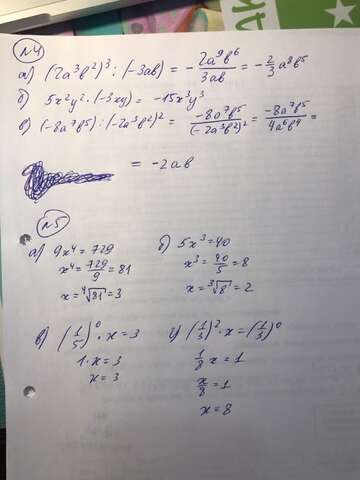 №4
а) (2a³b²)³ : (-3ab) = - 2a⁹b⁶/3ab = - 2/3 a⁸b⁵
б) 5x²y² · (-3xy) = -15x³y³
в) (-8a⁷b⁵) : (-2a³b²)² = -8a⁷b⁵/(-2a³b²)² = -8a⁷b⁵/4a⁶b⁴ =
= -2ab
№5
а) 9x⁴ = 729
x⁴ = 729/9 = 81
x = ⁴√81 = 3
б) 5x³ = 40
x³ = 40/5 = 8
x = ³√8 = 2
в) (1/5)⁰ · x = 3
1 · x = 3
x = 3
г) (1/3)² · x = (1/3)⁰
1/8 x = 1
x/8 = 1
x = 8